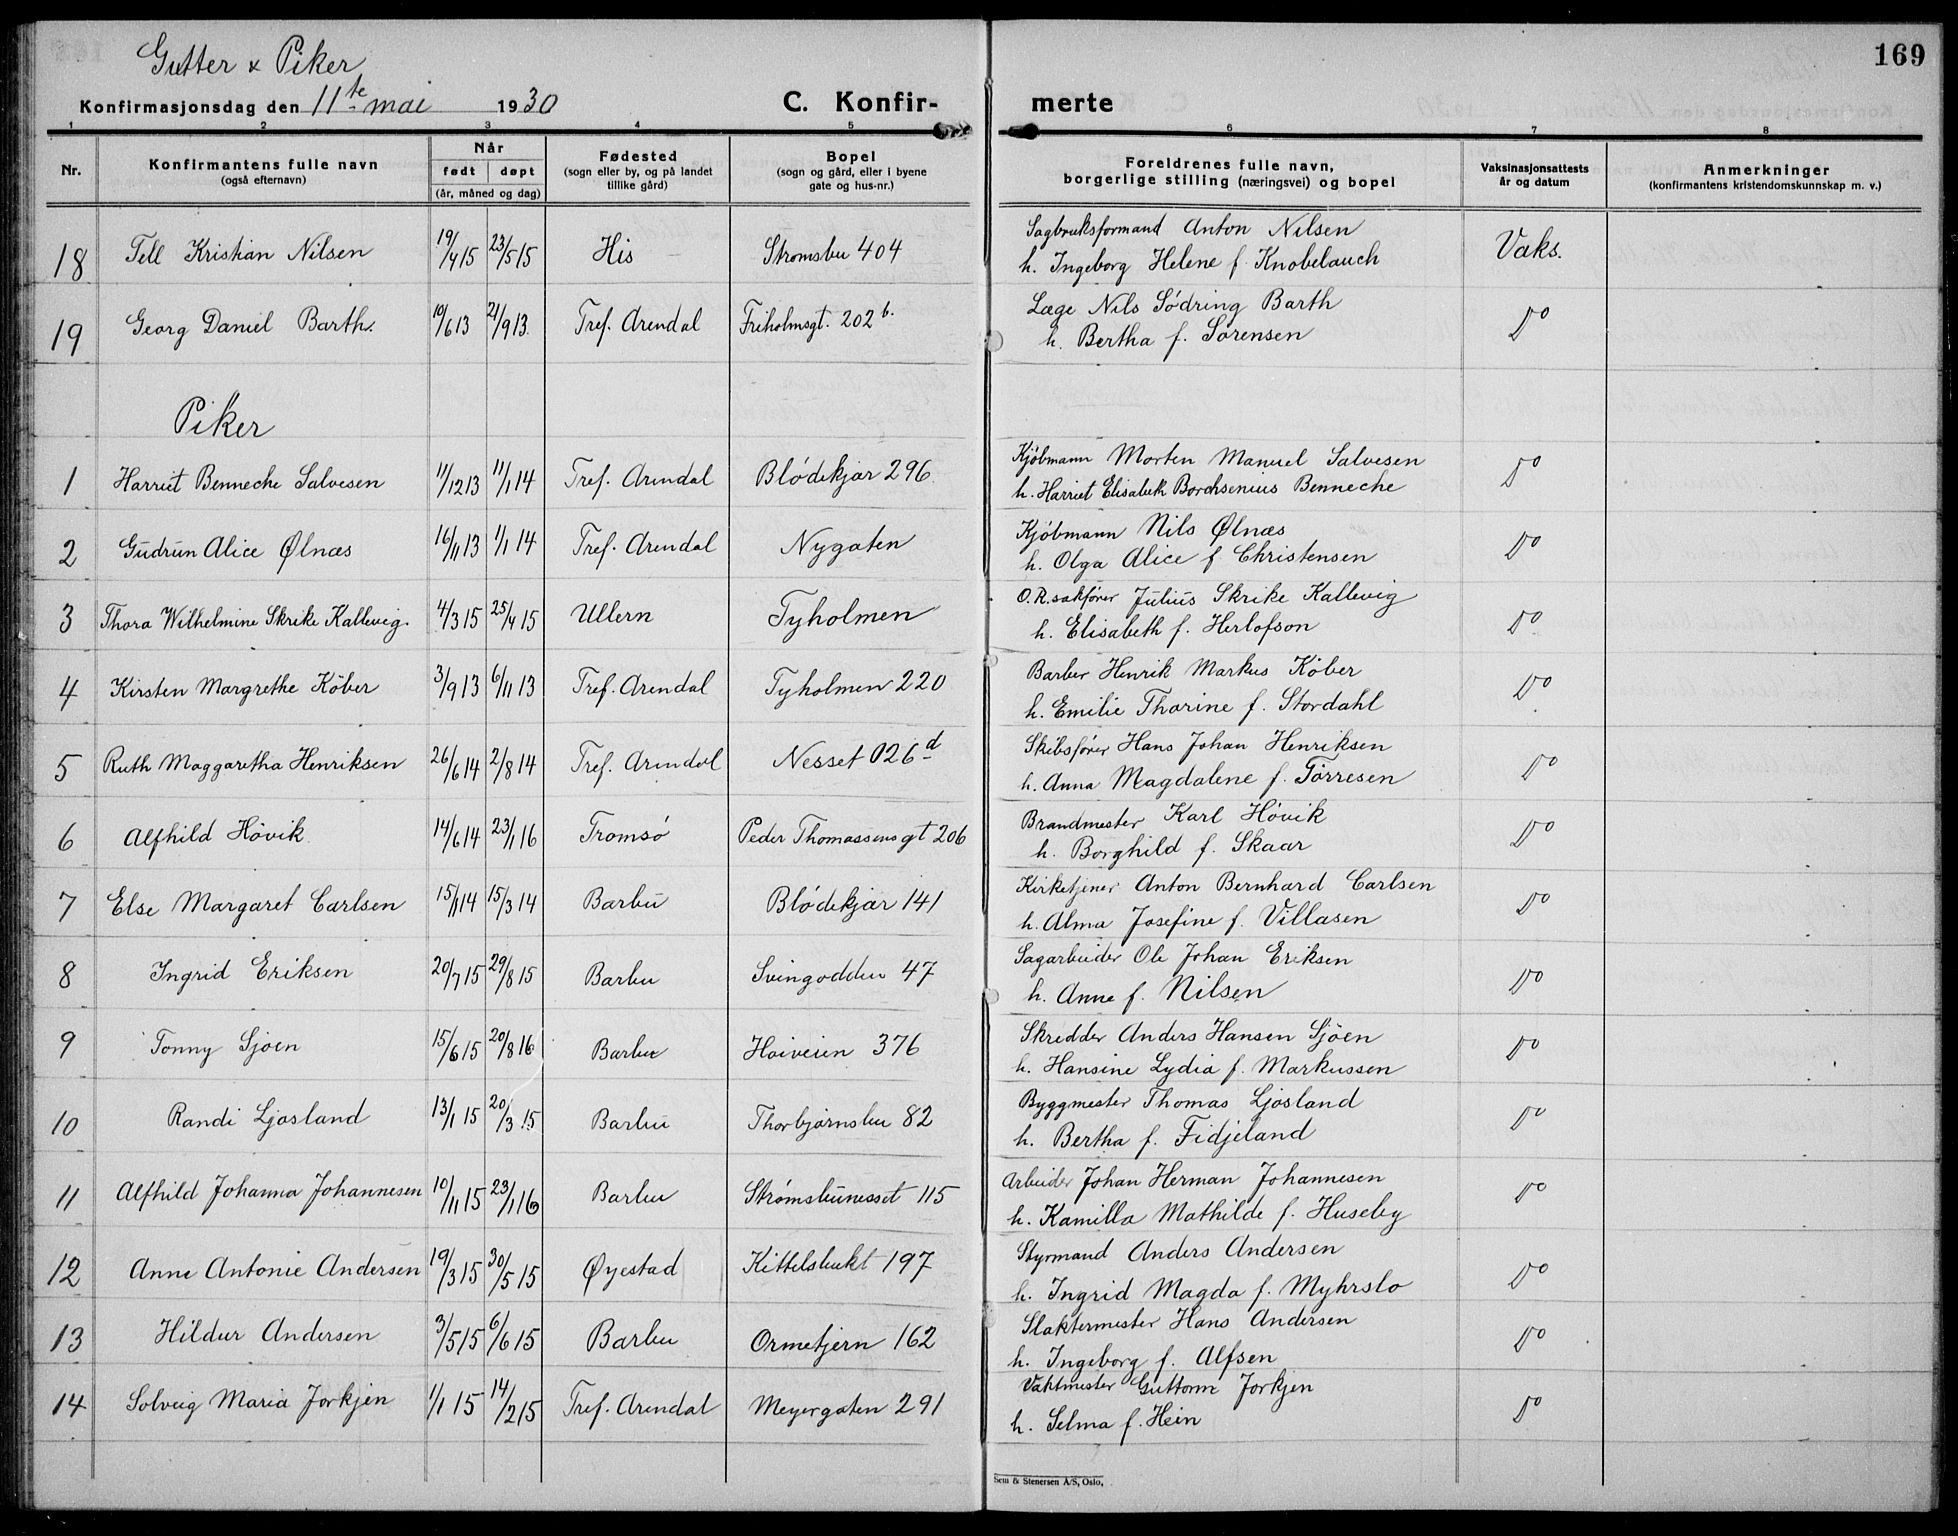 169
Gutter & Piker
Konfirmasjonsdag den 11te mai 1930 C. Konfir- merte
1 2 3 4 5 6 7 8
Nr. Konfirmantens fulle navn (også efternavn) Når født døpt (år, måned og dag) Fødested (sogn eller by, og på landet tillike gård) Bopel (sogn og gård, eller i byene gate og hus-nr.) Foreldrenes fulle navn, borgerlige stilling (næringsvei) og bopel Vaksinasjonsattests år og datum Anmerkninger (konfirmantens kristendomskunnskap m. v.)
18 Tell Kristian Nilsen 19/4 15 23/5 15 His Strømsbu 404 Sagbruksformand Anton Nilsen Vaks.
h. Ingeborg Helene f. Knobelauch
19 Georg Daniel Barth. 10/6 13 21/9 13. Tref. Arendal Friholmsgt. 202 b. Læge Nils Södring Barth Do
h. Bertha f. Sørensen
Piker
1 Harriet Benneche Salvesen 11/12 13 11/1 14 Tref. Arendal Blødekjær 296. Kjöbmann Morten Manuel Salvesen Do
h. Harriet Elisabeth Borchsenius Benneche
2 Gudrun Alice Ølnæs 16/11 13 1/1 14 Tref. Arendal Nygaten Kjöbmann Nils Ølnæs Do
h. Olga Alice f. Christensen
3 Thora Wilhelmine Skrike Kallevig. 4/3 15 25/4 15 Ullern Tyholmen O.R.sakfører Julius Skrike Kallevig Do
h. Elisabeth f. Herlofson
4 Kirsten Margrethe Köber 3/9 13 6/11 13 Tref. Arendal Tyholmen 220 Barber Henrik Markus Köber Do
h. Emilie Thorine f. Stordahl
5 Ruth Maggaretha Henriksen 26/6 14 2/8 14 Tref. Arendal Nesset 026 d Skibsfører Hans Johan Henriksen Do
h. Anna Magdalene f. Tørresen
6 Alfhild Hövik 14/6 14 23/1 16 Tromsö Peder Thomassens gt 206 Brandmester Karl Hövik Do
h. Borghild f. Skaar
7 Else Margaret Carlsen 15/1 14 15/3 14 Barbu Blödekjær 141 Kirketjener Anton Bernhard Carlsen Do
h. Alma Josefine f. Villasen
8 Ingrid Eriksen 20/7 15 29/8 15 Barbu Svingodden 47 Sagarbeider Ole Johan Eriksen Do
h. Anne f. Nilsen
9 Tonny Sjöen 15/6 15 20/8 16 Barbu Hoiveien 376 Skredder Anders Hansen Sjöen Do
h. Hansine Lydia f. Markussen
10 Randi Ljosland 13/1 15 20/3 15 Barbu Thorbjørnsbu 82 Byggmester Thomas Ljosland Do
h. Bertha f. Fidjeland
11 Alfhild Johanna Johannesen 10/11 15 23/1 16 Barbu Strømsbunesset 115 Arbeider Johan Herman Johannesen Do
h. Kamilla Mathilde f. Huseby
12 Anne Antonie Andersen 19/3 15 30/5 15 Øyestad Kittelsbukt 197 Styrmand Anders Andersen Do
h. Ingrid Magda f. Myhrslo
13 Hildur Andersen 3/5 15 6/6 15 Barbu Ormetjern 162 Slaktermester Hans Andersen Do
h. Ingeborg f. Alfsen
14 Solveig Maria Jorkjen 1/1 15 14/2 15 Tref. Arendal Meyergaten 291 Vaktmester Guttorm Jorkjen Do
h. Selma f. Hein
Sem & Stenersen A/S, Oslo,